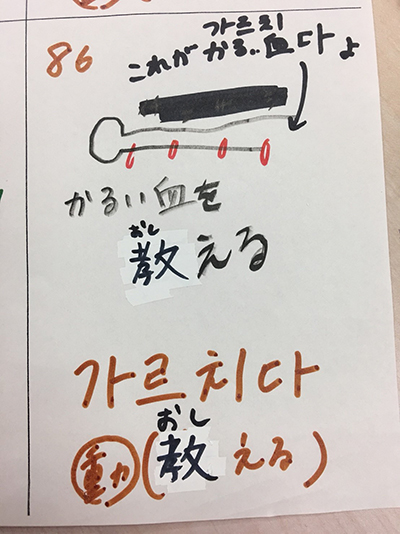 86
가르치
これが かるい血다よ
かるい血を
おし
教える
가르치다
おし
動(教える)